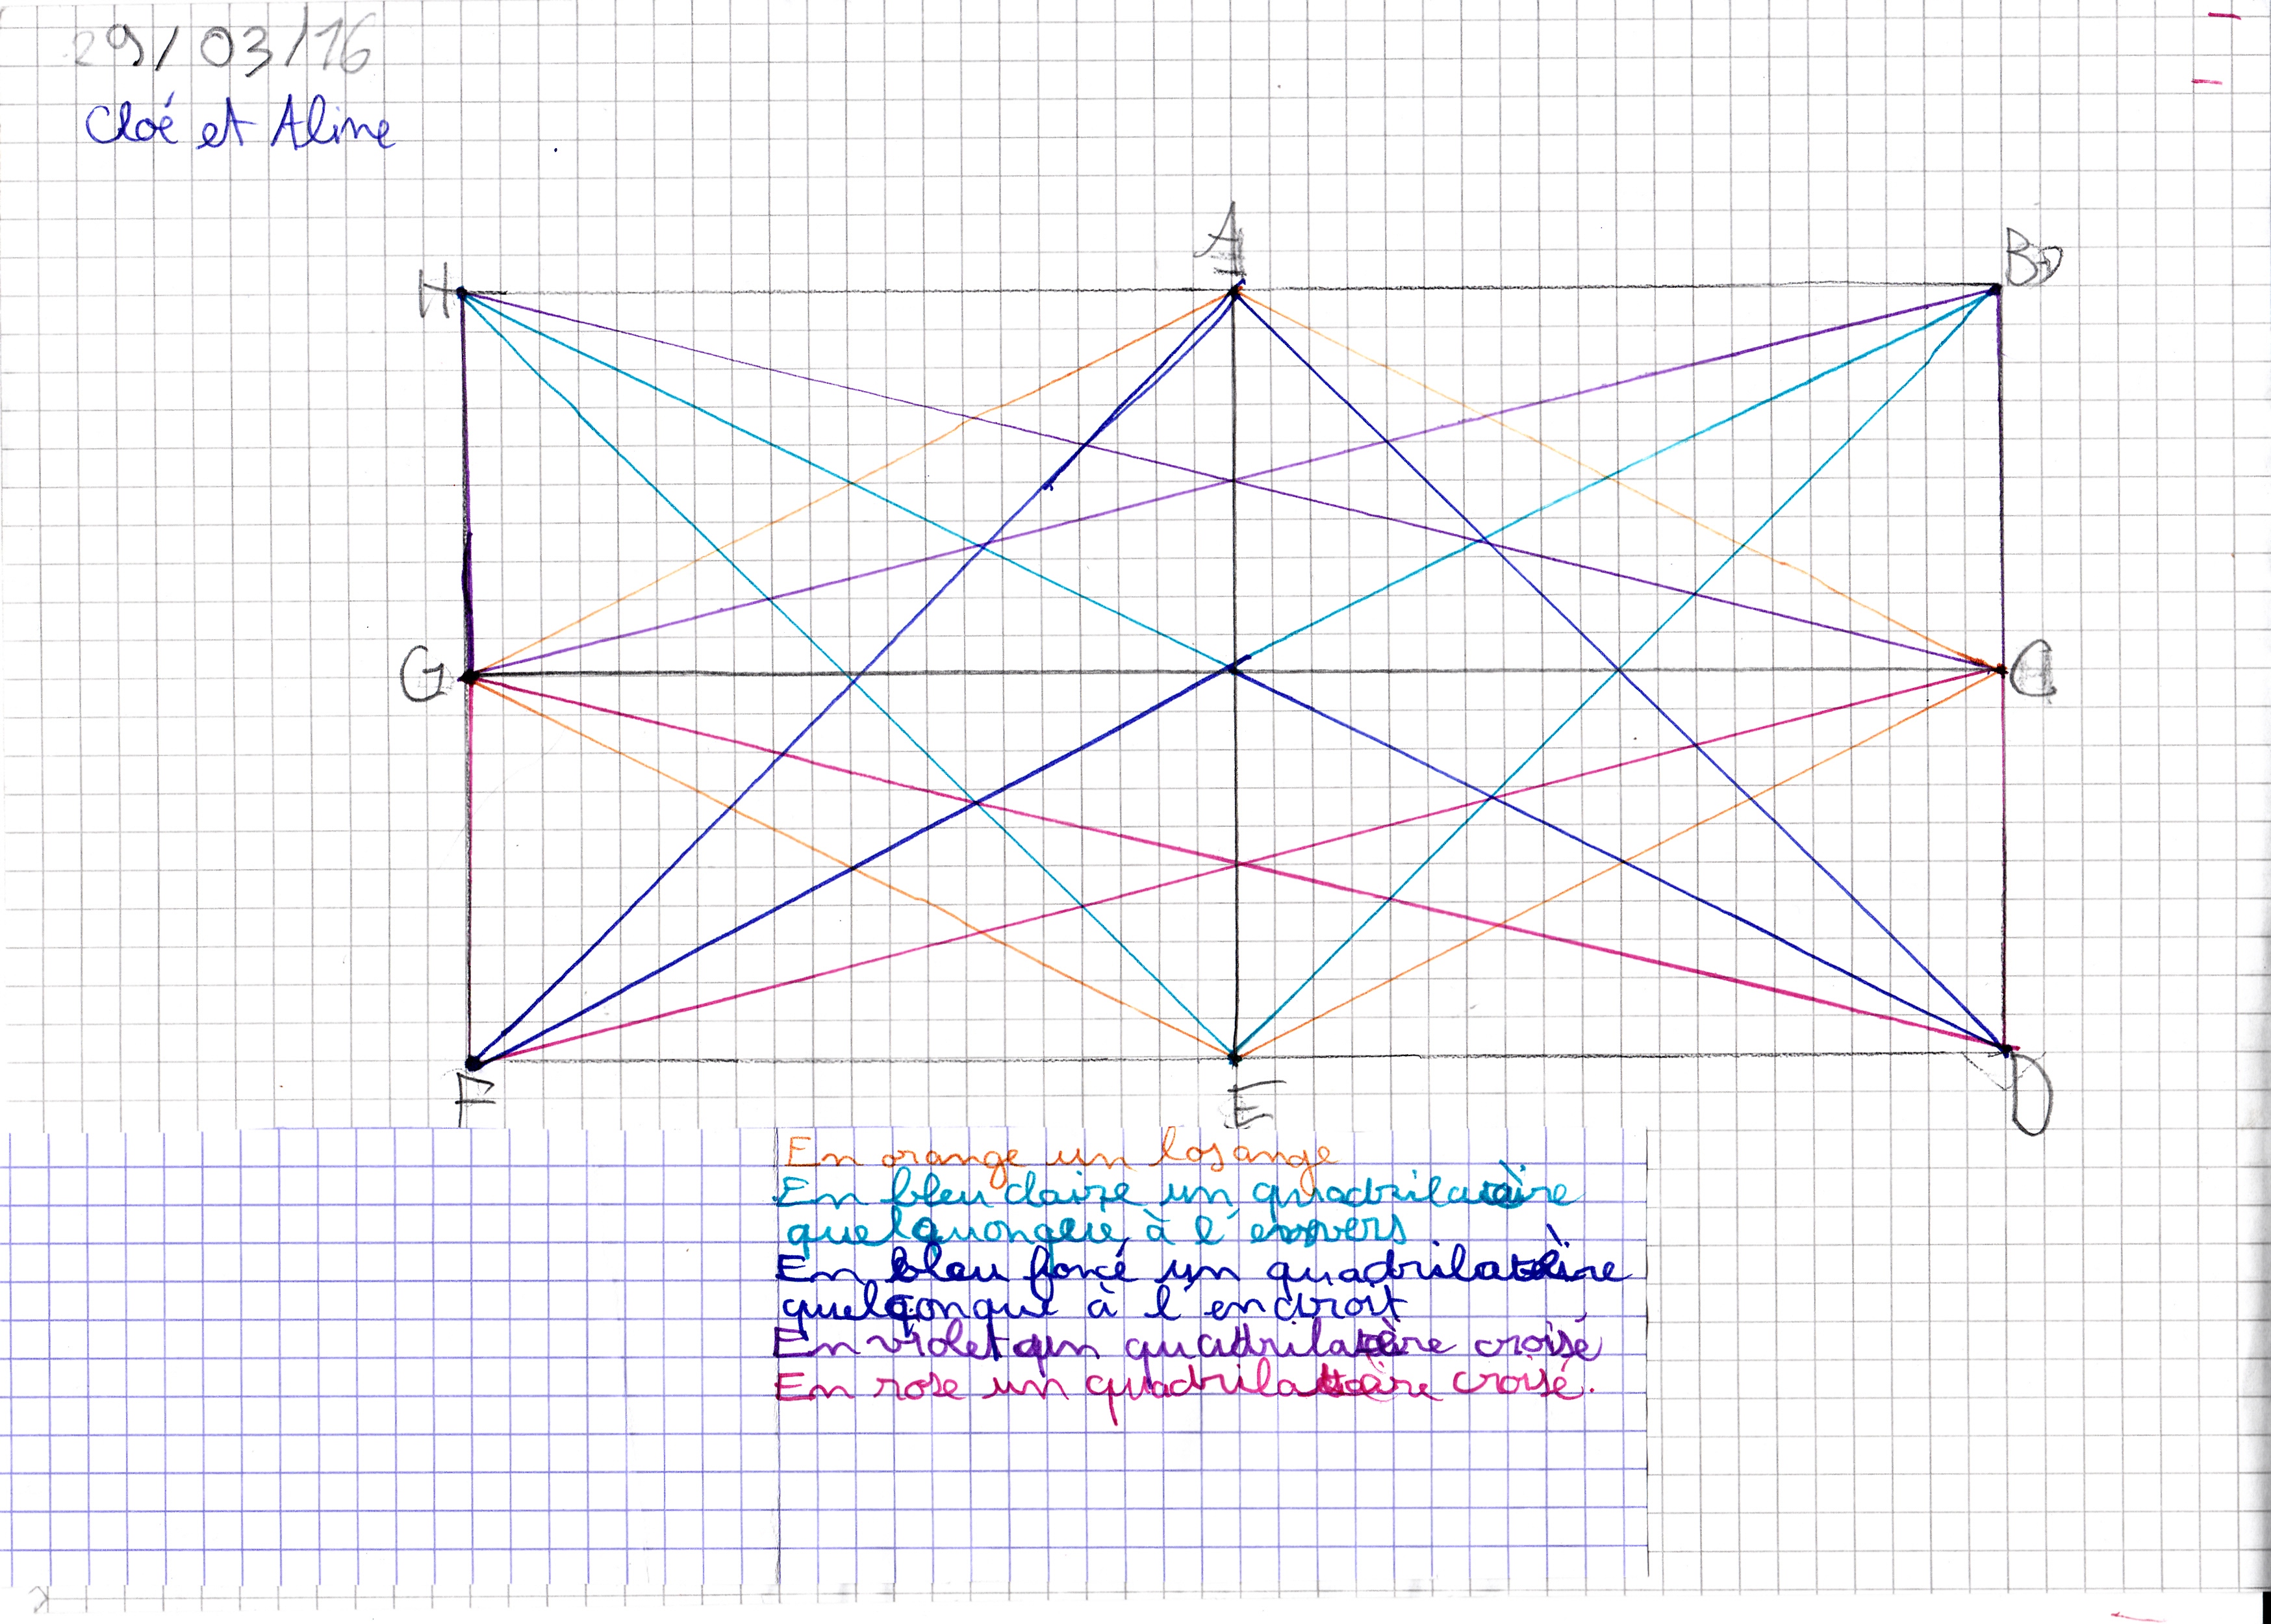 29/03/16
Cloé et Aline
A
H
B
G
C
F
E
D
En orange un losange
En bleu claire un quadrilataire
quelquonque à l'envers
En bleu foncé un quadrilatère
quelconque à l'endroit
En violet un quadrilatère croisé
En rose un quadrilatère croisé.